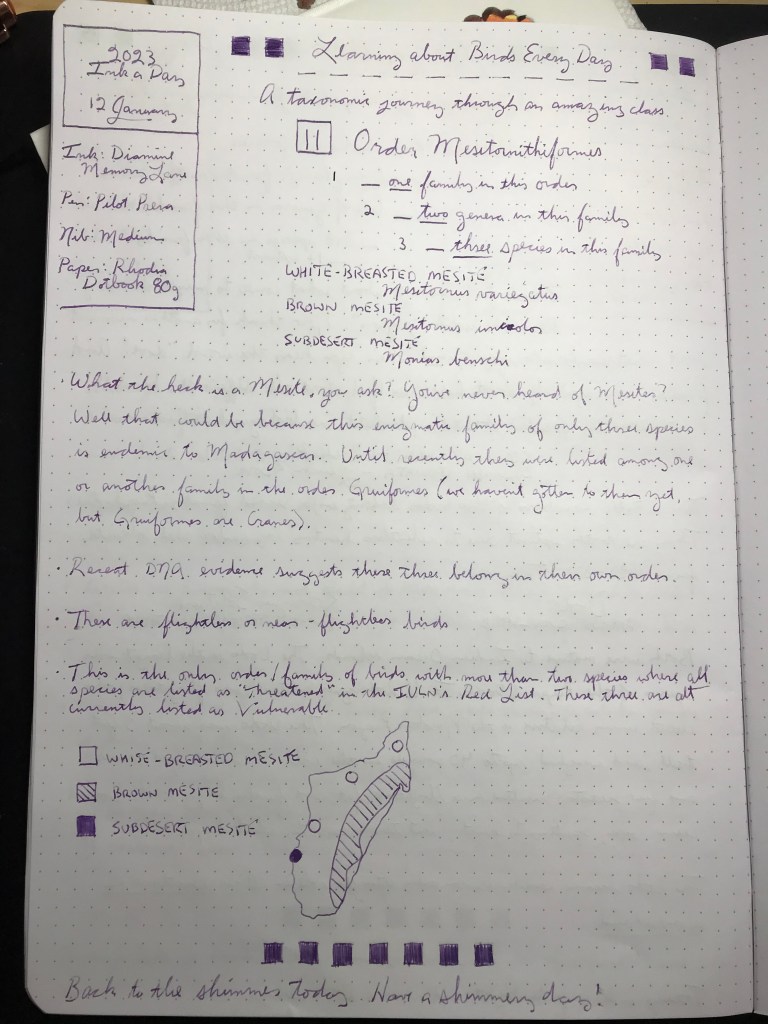 2023
Ink a Day
12 January
Ink: Diamine
Memory Lane
Pen: Pilot Prera
Nib: Medium
Paper: Rhodia
Dotbook 80g
Learning about Birds Every Day
A taxonomic journey through an amazing class
11 Order Mesitornithiformes
1 — one family in this order
2 — two genera in this family
3 — three species in this family
WHITE-BREASTED MESITE
Mesitornus variegatus
BROWN MESITE
Mesitornus unicolor
SUBDESERT MESITE
Monias benschi
· What the heck is a Mesite, you ask? You've never heard of Mesites?
Well that could be because this enigmatic family of only three species
is endemic to Madagascar. Until recently they were listed among one
or another family in the order Gruiformes (we haven't gotten to them yet,
but Gruiformes are Cranes).
· Recent DNA evidence suggests these three belong in their own order.
· These are flightless or near-flightless birds
· This is the only order/family of birds with more than two species where all
species are listed as "Threatened" in the IULN's Red List. These three are all
currently listed as Vulnerable.
WHITE-BREASTED MESITE
BROWN MESITE
SUBDESERT MESITE
Back to the shimmer today. Have a shimmery day!